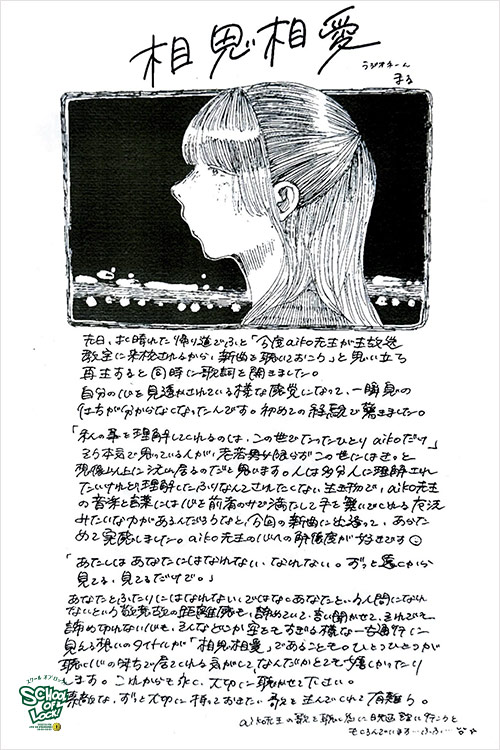 相思相愛
ラジオネーム
まる
先日、よく晴れた帰り道でふと「今度aiko先生が生放送
教室に来校されるから、新曲を聴いておこう」と思い立ち
再生すると同時に歌詞を開きました。
自分の心を見透かされている様な感覚になって、一瞬息の
仕方が分からなくなったんです。初めての経験で驚きました。
「私の事を理解してくれるのは、この世でたったひとりaikoだけ」
そう本気で思っている人が、老若男女限らずこの世にはきっと
想像以上に沢山居るのだと思います。人は多分人に理解され
たいけれど理解したふりなんてされたくない生き物で、aiko先生
の音楽と言葉には心を前者のみで満たして手を繋いでくれる魔法
みたいな力があるんだろうなと、今回の新曲に出逢って、あらた
めて実感しました。aiko先生の心への解像度が好きです
「あたしはあなたにはなれない、なれない。ずっと遠くから
見てる、見てるだけで。」
あなたとふたりにはなれない、ではなくあなたという人間になれ
ないという
の距離感を、諦めていて、言い聞かせて、それでも
諦め切れない心も、そんなどこか
すぎる様な一方通行に
見える想いのタイトルが「相思相愛」であることも。ひとつひとつが
聴く心の傍で居てくれる気がして、なんだかとても嬉しかったり
します。これからも永く、大切に聴かせて下さい。
素敵な、ずっと大切に持っておきたい歌を生んでくれて有難う。
aiko先生の歌を聴く為に映画館に行こうと
もくろんでいます…ふふ…
スクール オブ ロック!
SCHOOL OF LOCK!